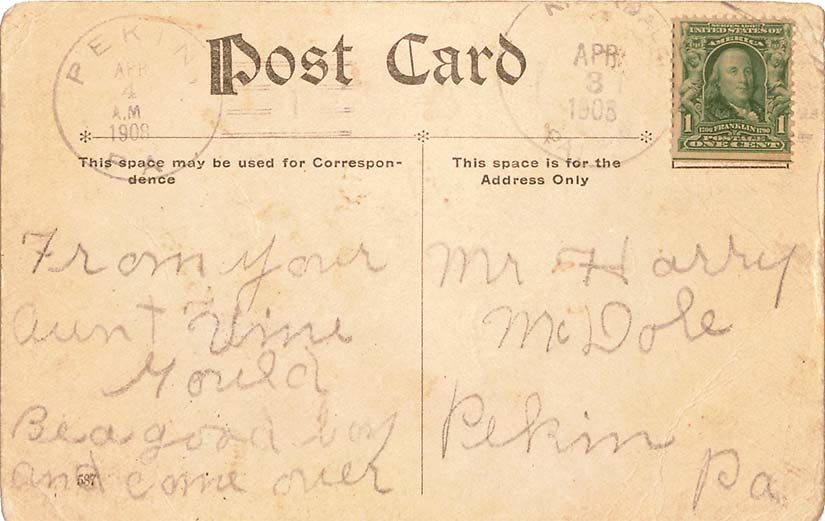 Post Card
PEKIN
APR
4
A.M
1908
PA
APR
3
1908
SERIES 1902
UNITED STATES OF
AMERICA
1 1
1706 FRANKLIN 1790
POSTAGE
ONE CENT
This space may be used for Correspon-
dence
From your
Aunt Vine
Gould
Be a good boy
and come over
587
This space is for the
Address Only
Mr Harry
McDole
Pekin
Pa